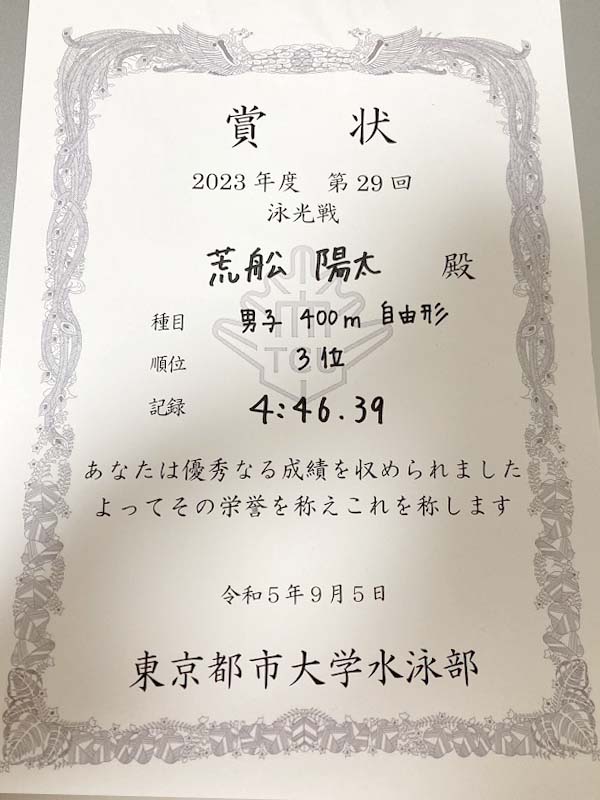 賞状
2023年度 第29回
泳光戦
荒船 陽太 殿
種目 男子 400m 自由形
順位 3位
記録 4:46.39
TCU
あなたは優秀なる成績を収められました
よってその栄誉を称えこれを称します
令和5年9月5日
東京都市大学水泳部